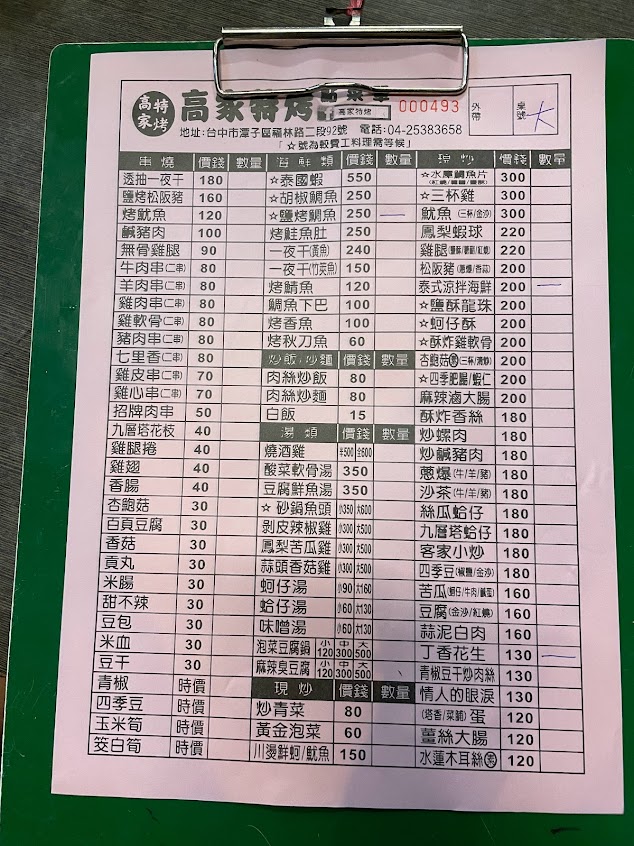 高家 特烤 高家特烤 點菜單 000493 外帶 桌號 大
高家特烤
地址:台中市潭子區福林路二段92號 電話:04-25383658
「☆號為較費工料理需等候」
串燒 價錢 數量 海鮮類 價錢 數量 現炒 價錢 數量
透抽一夜干 180 ☆泰國蝦 550 ☆水庫鯛魚片 300
鹽烤松阪豬 160 ☆胡椒鯛魚 250 ☆三杯雞 300
烤魷魚 120 ☆鹽烤鯛魚 250 一 魷魚(三杯/金沙) 300
鹹豬肉 100 烤鮭魚肚 250 鳳梨蝦球 220
無骨雞腿 90 一夜干(黃魚) 240 雞腿 220
牛肉串(二串) 80 一夜干(竹莢魚) 150 松阪豬(蔥爆/香蒜) 200
羊肉串(二串) 80 烤鯖魚 120 泰式涼拌海鮮 200 一
雞肉串(二串) 80 鯛魚下巴 100 ☆鹽酥龍珠 200
雞軟骨(二串) 80 烤香魚 100 ☆蚵仔酥 200
豬肉串(二串) 80 烤秋刀魚 60 ☆酥炸雞軟骨 200
七里香(二串) 80 炒飯.炒麵 價錢 數量 杏鮑菇(素) 200
雞皮串(二串) 70 肉絲炒飯 80 ☆四季肥腸/蝦仁 200
雞心串(二串) 70 肉絲炒麵 80 麻辣滷大腸 200
招牌肉串 50 白飯 15 酥炸香絲 180
九層塔花枝 40 湯類 價錢 數量 炒螺肉 180
雞腿捲 40 燒酒雞 半500 全600 炒鹹豬肉 180
雞翅 40 酸菜軟骨湯 350 蔥爆(牛/羊/豬) 180
香腸 40 豆腐鮮魚湯 350 沙茶(牛/羊/豬) 180
杏鮑菇 30 ☆砂鍋魚頭 小350 大600 絲瓜蛤仔 180
百頁豆腐 30 剝皮辣椒雞 小300 大500 九層塔蛤仔 180
香菇 30 鳳梨苦瓜雞 小300 大500 客家小炒 180
貢丸 30 蒜頭香菇雞 小300 大500 四季豆(椒鹽/金沙) 180
米腸 30 蚵仔湯 小90 大160 苦瓜 160
甜不辣 30 蛤仔湯 小60 大130 豆腐(金沙/紅燒) 160
豆包 30 味噌湯 小60 大130 蒜泥白肉 160
米血 30 泡菜豆腐鍋 小120 中300 大500 丁香花生 130 一
豆干 30 麻辣臭豆腐 小120 中300 大500 青椒豆干炒肉絲 130
青椒 時價 現炒 價錢 數量 情人的眼淚 130
四季豆 時價 炒青菜 80 (塔香/菜脯)蛋 120
玉米筍 時價 黃金泡菜 60 薑絲大腸 120
筊白筍 時價 川燙鮮蚵/魷魚 150 水蓮木耳絲(素) 120